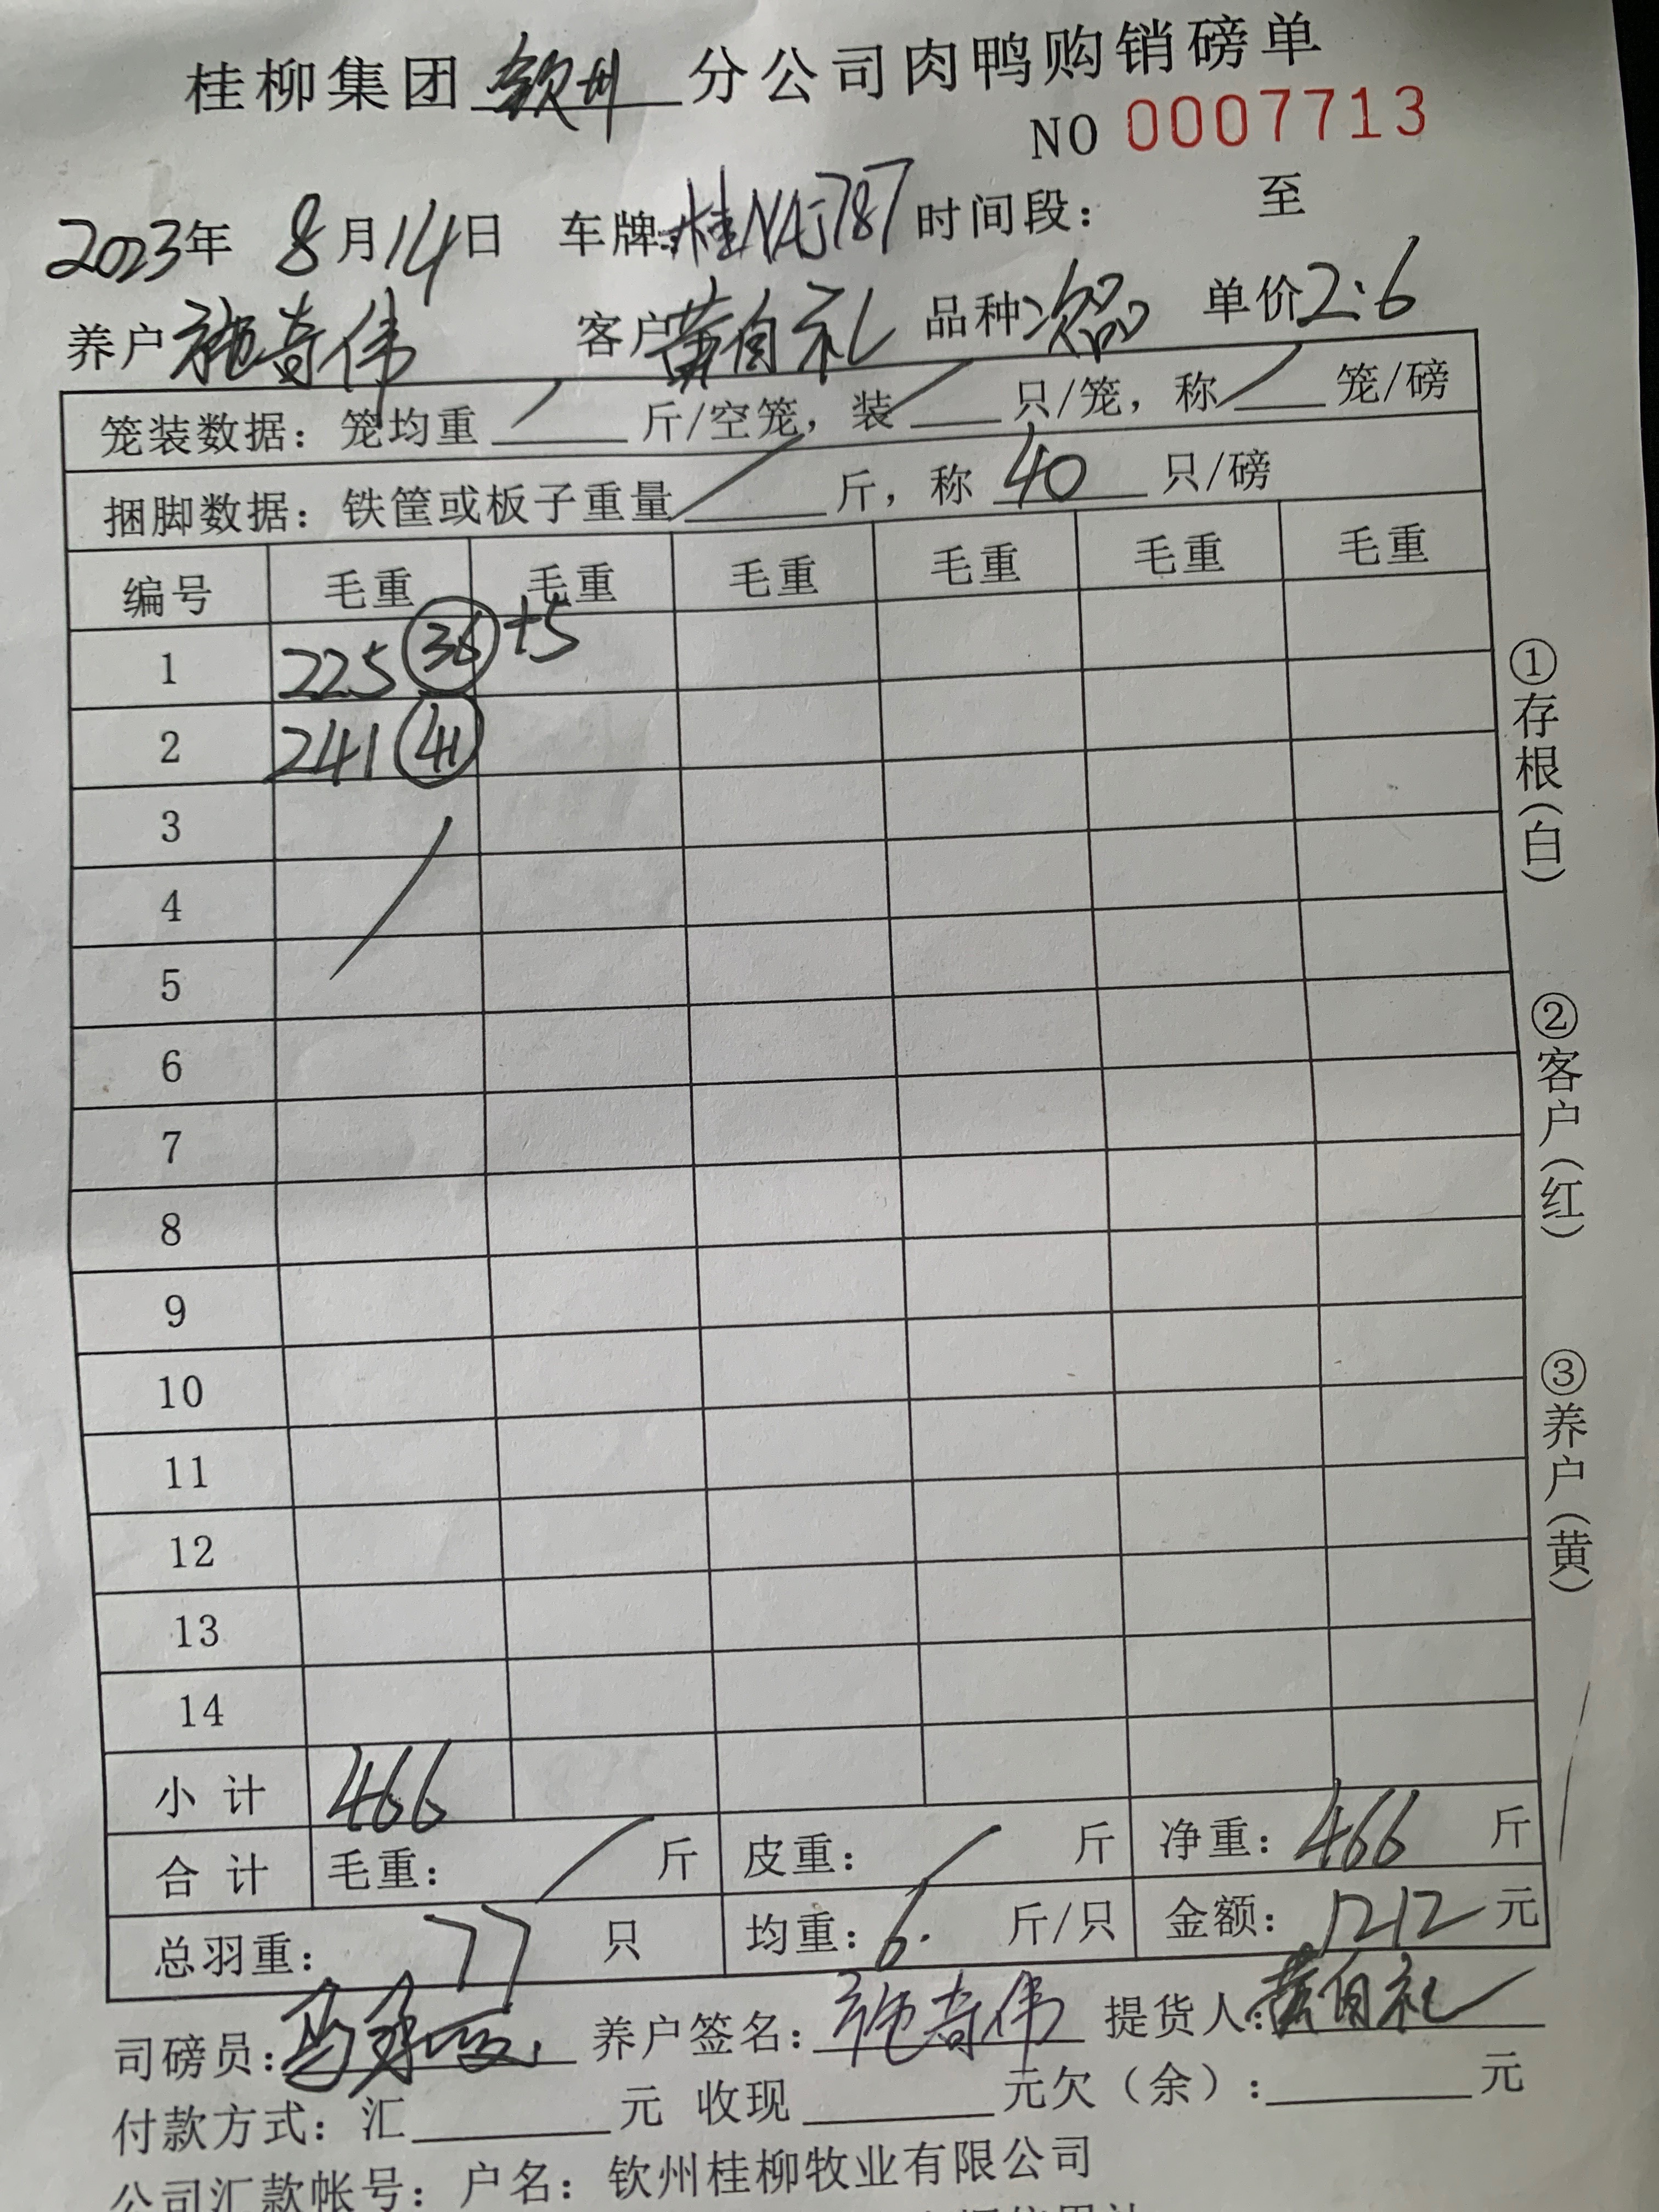 桂柳集团 钦州 分公司肉鸭购销磅单
NO 0007713
2023年 8月14日 车牌:桂NAJ787 时间段: 至
养户 施奇伟 客户 黄自礼 品种 次品 单价 2.6
笼装数据: 笼均重 / 斤/空笼, 装 / 只/笼, 称 / 笼/磅
捆脚数据: 铁筐或板子重量 / 斤, 称 40 只/磅
编号 毛重 毛重 毛重 毛重 毛重 毛重
1 225 36 +5
2 241 41
3
4
5
6
7
8
9
10
11
12
13
14
小计 466
合计 毛重: / 斤 皮重: / 斤 净重: 466 斤
总羽重: 77 只 均重: 6. 斤/只 金额: 1212 元
司磅员: 养户签名: 施奇伟 提货人: 黄自礼
付款方式: 汇 元 收现 元欠(余): 元
公司汇款帐号: 户名: 钦州桂柳牧业有限公司
①存根(白)
②客户(红)
③养户(黄)